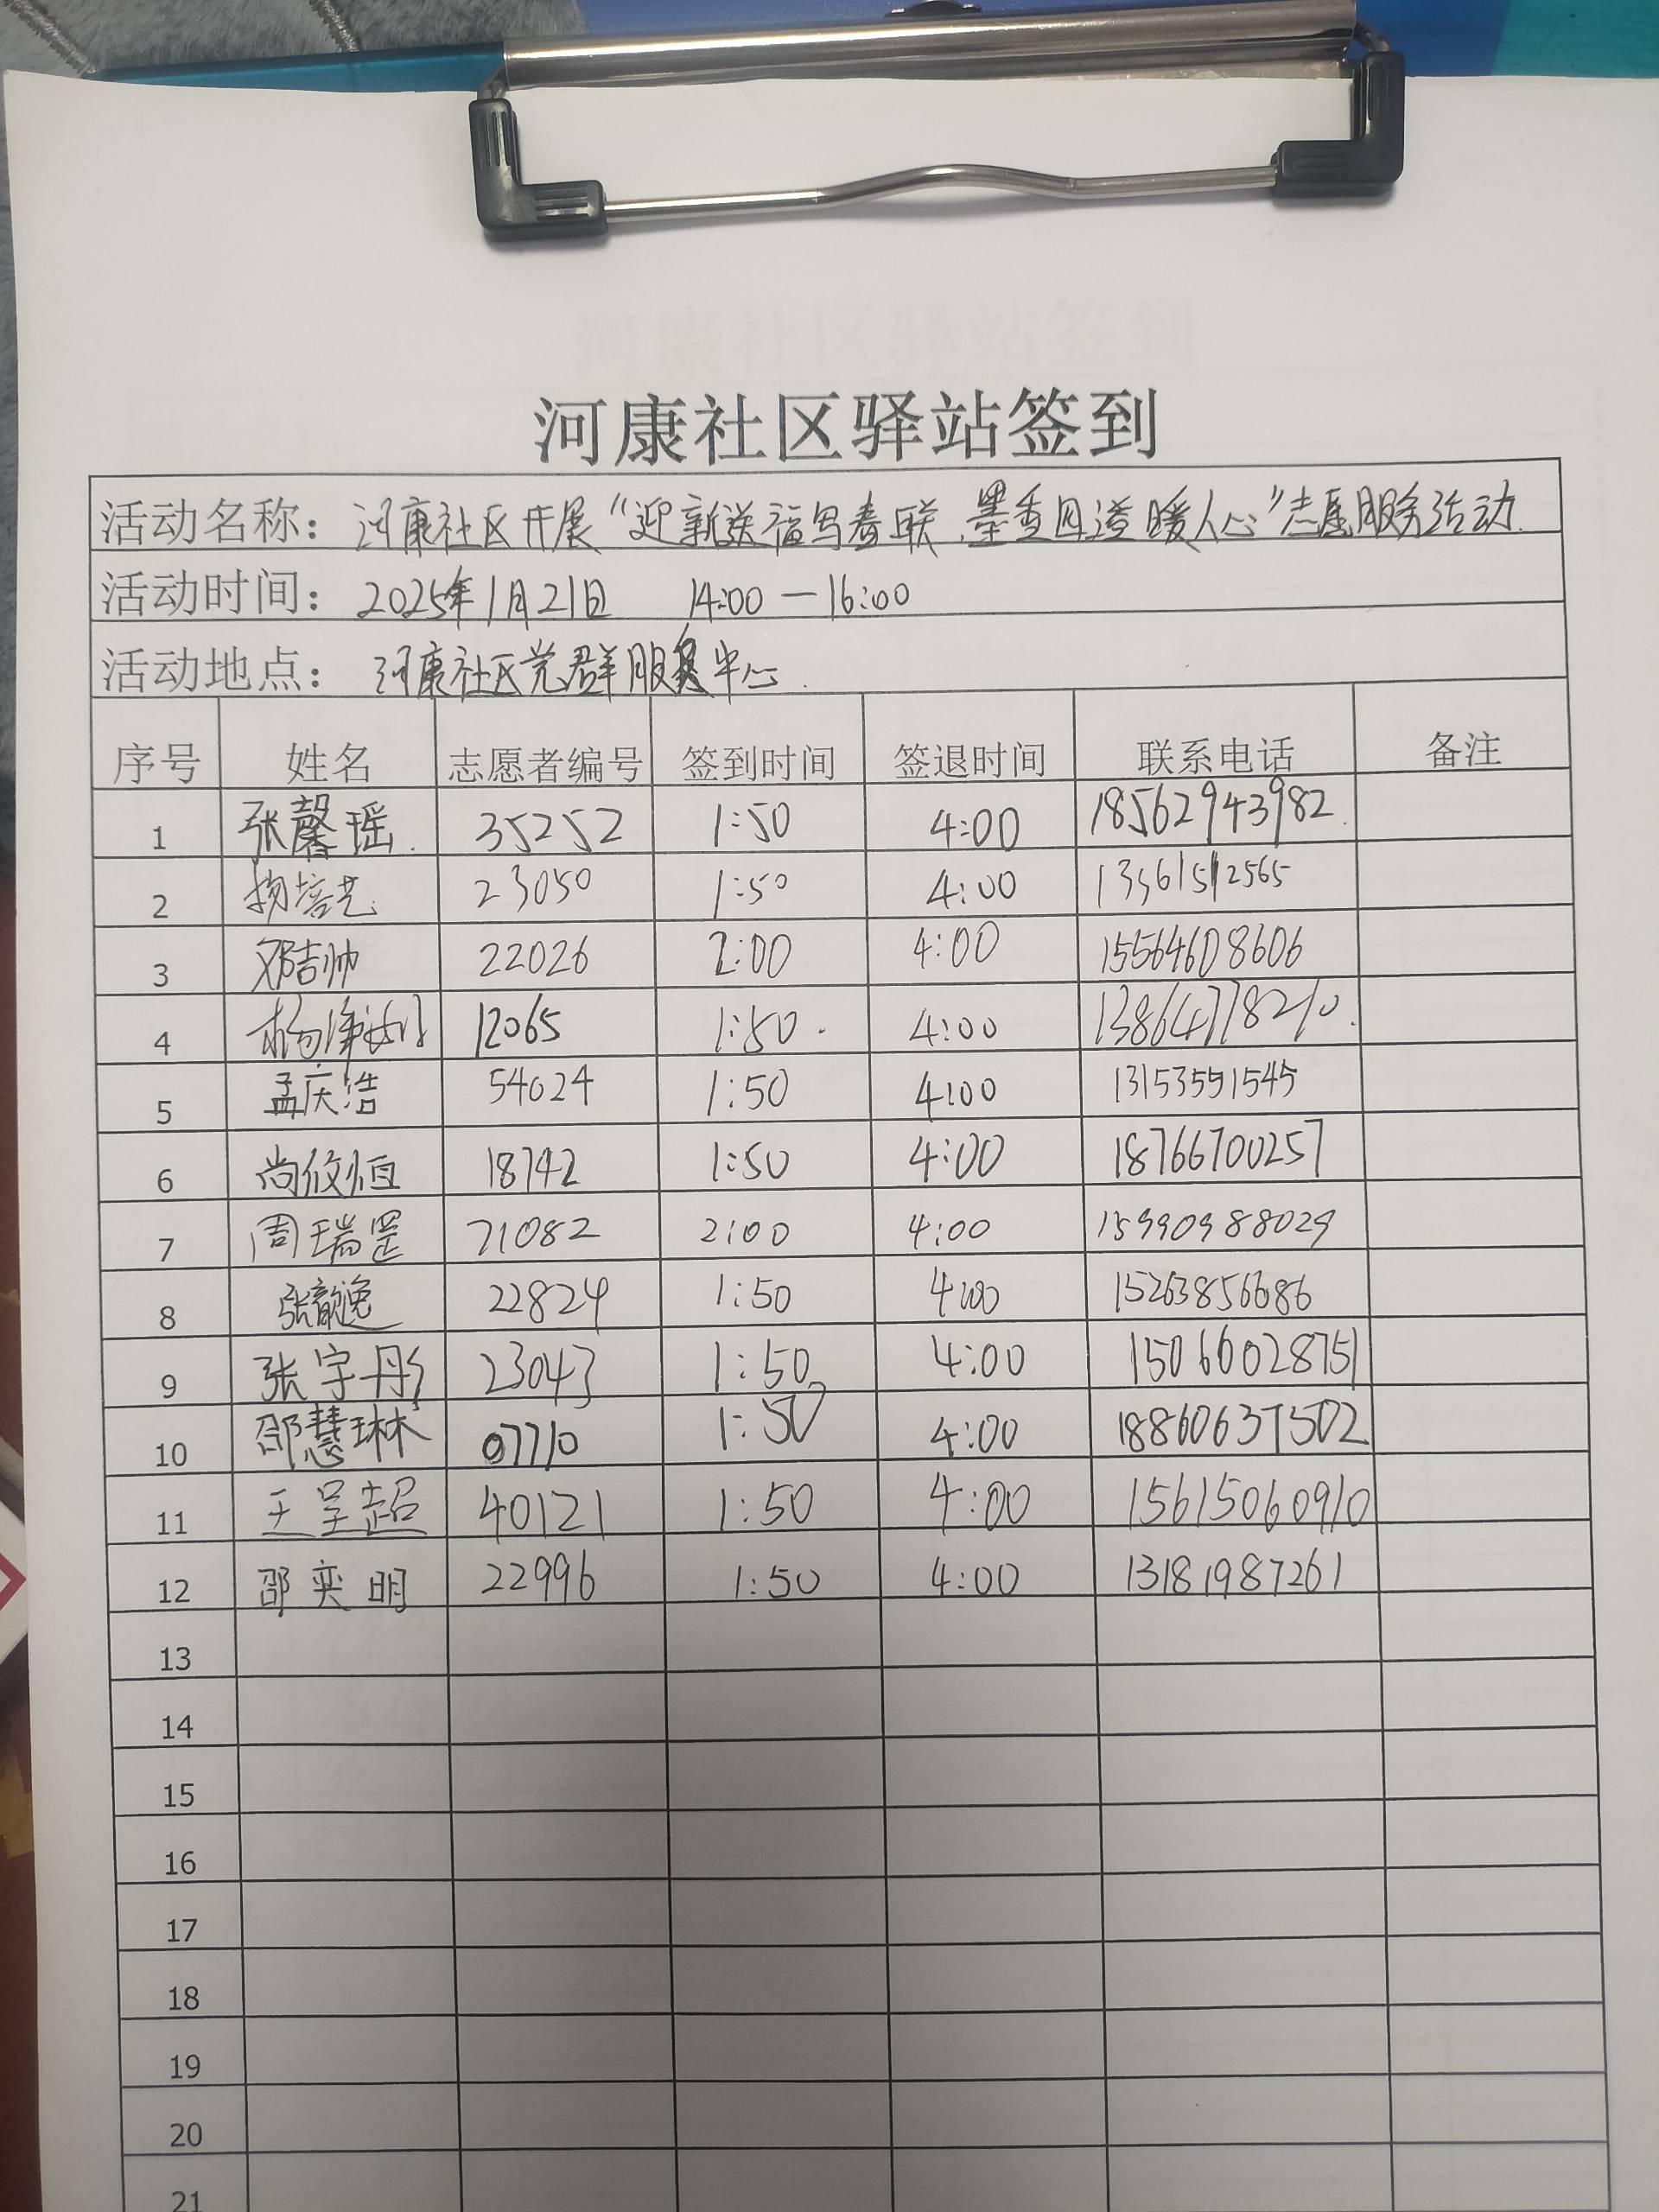 河康社区驿站签到
活动名称：河康社区开展“迎新送福写春联，墨香四溢暖人心”志愿服务活动.
活动时间：2025年1月21日 14:00—16:00
活动地点：河康社区党群服务中心.
序号 姓名 志愿者编号 签到时间 签退时间 联系电话 备注
1 张馨瑶. 35252 1:50 4:00 18562943982.
2 杨培艺 23050 1:50 4:00 13361512565
3 邓吉帅 22026 2:00 4:00 15564608606
4 12065 1:50. 4:00 13864778210.
5 孟庆浩 54024 1:50 4:00 13153551545
6 尚攸恒 18742 1:50 4:00 18766700257
7 周瑞罡 71082 2:00 4:00 15990988029
8 张韵逸 22824 1:50 4:00 15263856686
9 张宇彤 23043 1:50 4:00 15066028751
10 邵慧琳 07710 1:50 4:00 18860637502
11 王呈超 40121 1:50 4:00 15615060910
12 邵奕明 22996 1:50 4:00 13181987261
13
14
15
16
17
18
19
20
21